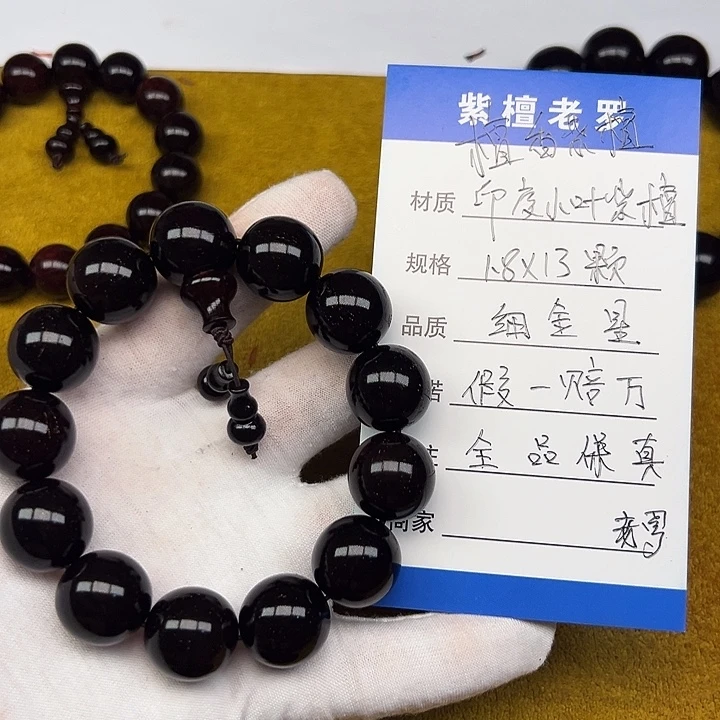 紫檀老罗
檀香紫檀
材质 印度小叶紫檀
规格 1.8X13颗
品质 细金星
诺 假一赔万
主 全品保真
商家